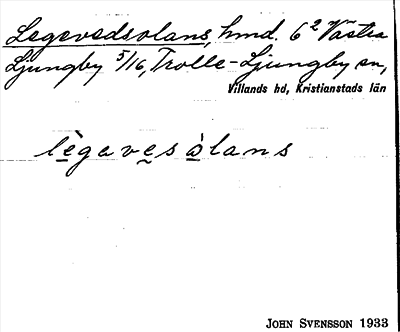 Legevedsolans, hmd. 6² Västra
Ljungby 5/16, Trolle-Ljungby sn,
Villands hd, Kristianstads län
lègavesòlans
JOHN SVENSSON 1933